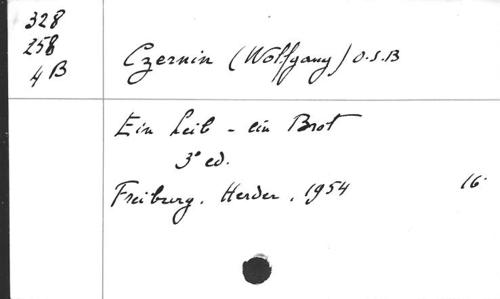 328
258
4 B
Czernin (Wolfgang) O.S.B
Ein Leib - ein Brot
3ª ed.
Freiburg. Herder. 1954 16·